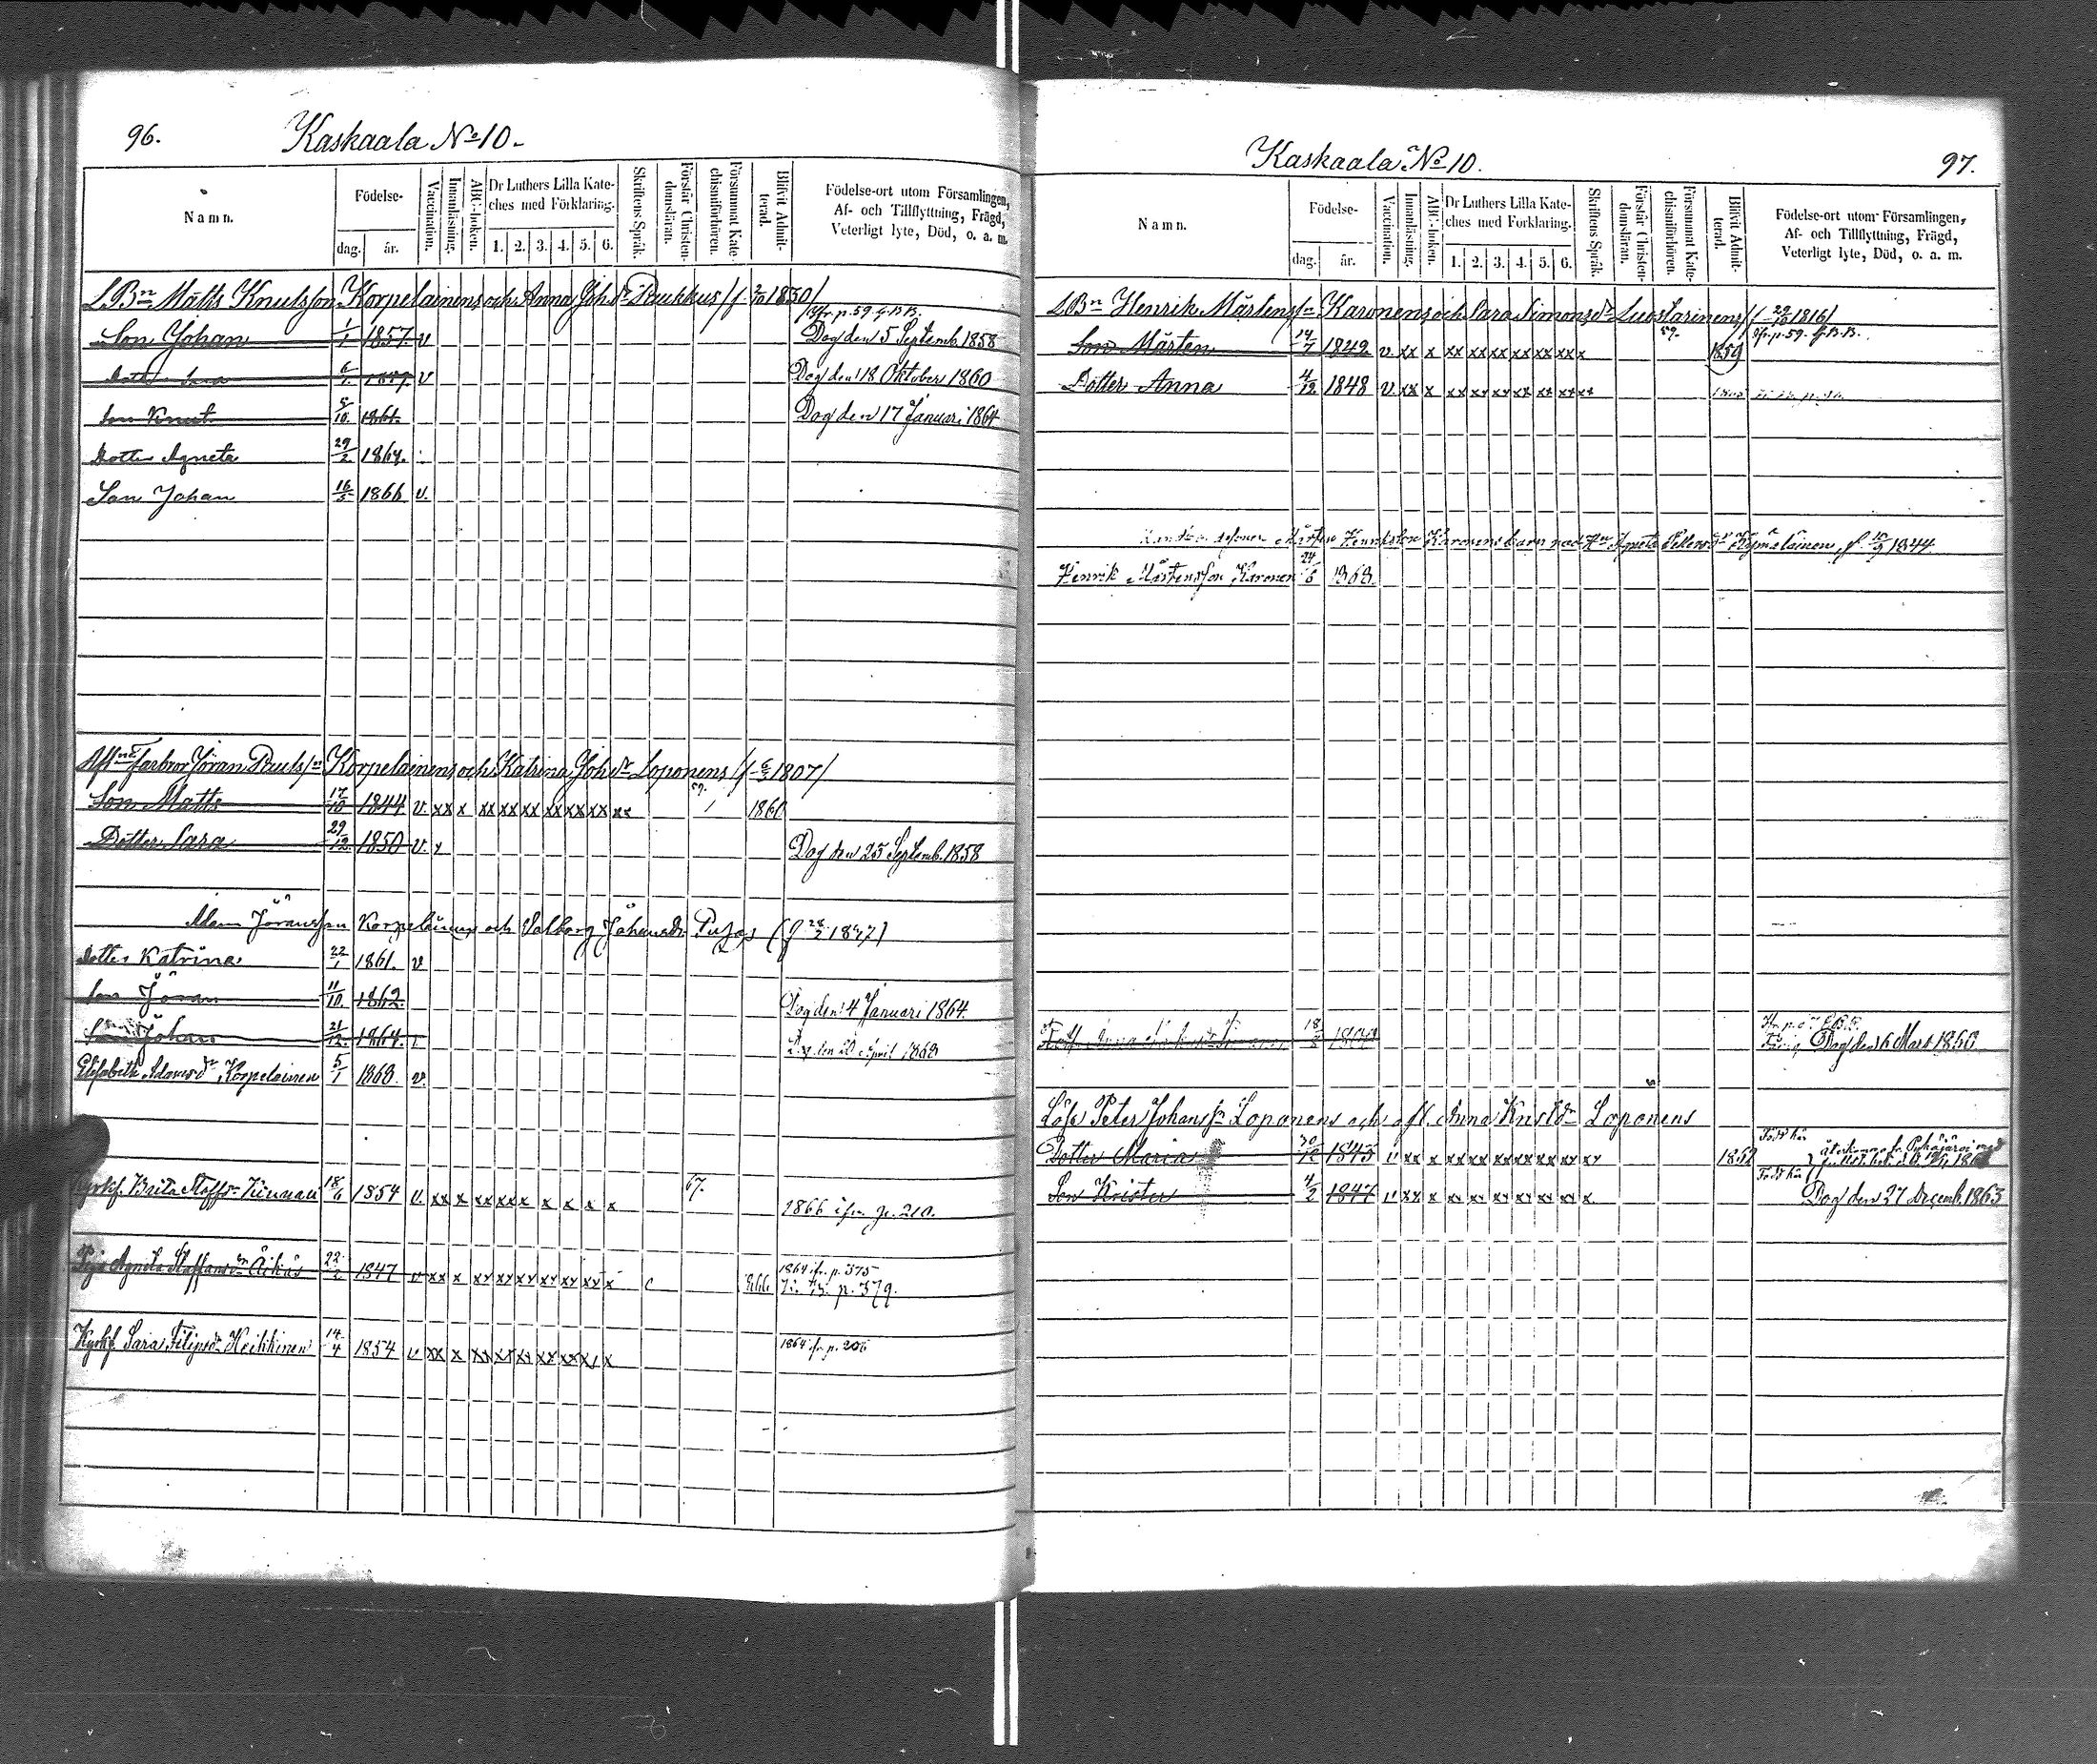 96.
Kaskaala No 10.
Namn.
Födelse-
dag.
år.
Vaccination.
Innanläsning.
ABC-boken.
Dr Luthers Lilla Kate-
ches med Förklaring.
1. 2. 3. 4. 5. 6.
Skriftens Språk.
Förstår Christen-
domsläran.
Försummat Kate-
chismiförhören.
Blifvit Admit-
terad.
Födelse-ort utom Församlingen,
Af- och Tillflyttning, Frägd,
Veterligt lyte, Död, o. a. m.
LBn Matts Knutsson Korpelainens och Anna Joh.dr Ruukkus /f. 2/10 1830/
p. 59.
Son Johan 1/1 1857. v Dog den 5 Septemb. 1858
Sara v Dog den 18 Oktober 1860
Son Knut 10. 1861. Dog den 17 Januari 1864
Dotter Agneta 29/2 1864.
Son Johan 16/5 1866 v.
farbror Jöran Paulsn Korpelainens och Katrina Joh.dr Loponens /f. 1807/
59.
Son Matts 17/10 1844 v. xx x xx xx xx xx xx xx xx 1 1860
Dotter Sara 29/12 1850 v. x Dog den 25 Septemb. 1858
Adam Jöransson Korpelainens och Valborg Johansdr Pusas
Dotter Katrina 22/1 1861. v
Son Jöran 11/10. 1862. Dog den 4 Januari 1864.
Son Johan 21/12. 1864. Dog den 20 April 1868
Elisabeth Adamsdr Korpelainen 5/1 1868. v.
Brita Staffsdr Kiunnan 18/6 1854 v. xx x xx xx x x x x x 67. 1866 ifrn p. 210.
Pig. Agneta Staffansdr Äikäs 22/2 1847 v xx x xx xx xx xx xx xx x c 1866 1864 ifr. p. 375
p. 379.
Sara Filipsdr Heikkinen 14/4 1854 v xx x xx xx xx xx xx xx x 1864 ifr. p.
97.
Kaskaala No 10.
Namn.
Födelse-
dag.
år.
Vaccination.
Innanläsning.
ABC-boken.
Dr Luthers Lilla Kate-
ches med Forklaring.
1. 2. 3. 4. 5. 6.
Skriftens Språk.
Förstår Christen-
domsläran.
Försummat Kate-
chismiförhören.
Blifvit Admit-
terad.
Födelse-ort utom Församlingen,
Af- och Tillflyttning, Frägd,
Veterligt lyte, Död, o. a. m.
LBn Henrik Mårtensn Karonens och Sara Simonsdr Luostarinens /f. 1816/
59. p. 59.
Son Mårten 14/7 1842 v. xx x xx xx xx xx xx xx x 1859
Dotter Anna 4/12 1848 v. xx x xx xx xx xx xx xx xx
Mårten Henriksson Karonens barn med Agneta Pettersdr f. 1844.
Henrik Mårtensson Karonen 24/6 1868.
Anna 18 Dog den 6 Mars 1860
Peter Johanssn Loponens och Anna Kristdr Loponens
Född här
Dotter Maria 30/12 1845 v xx x xx xx xx xx xx xx xx
Född här
Son Krister 4/2 1847 v xx x xx xx xx xx xx xx x Dog den 27 Decemb. 1863